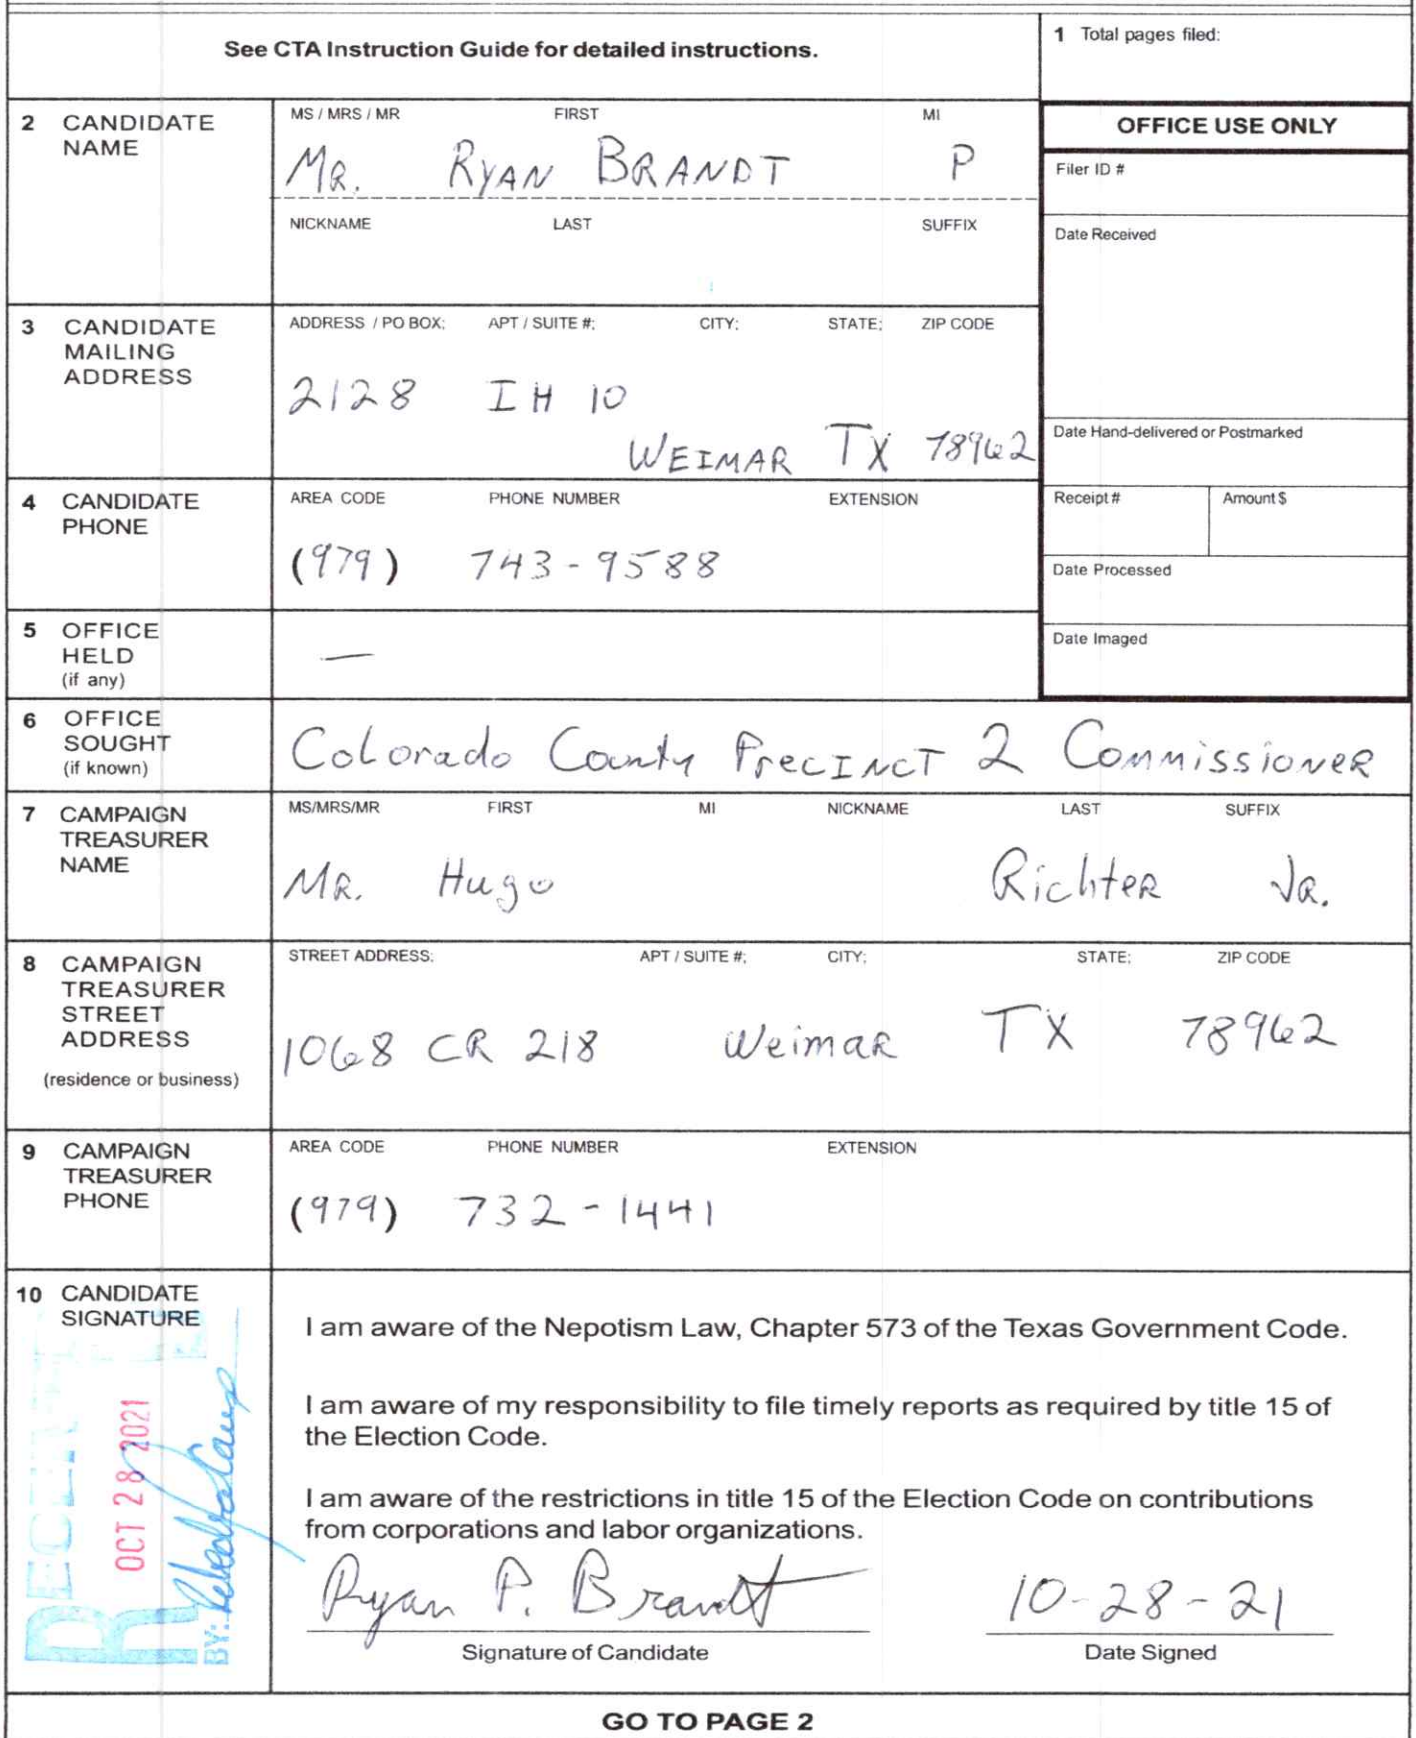 See CTA Instruction Guide for detailed instructions.
1 Total pages filed:
2 CANDIDATE NAME
MS / MRS / MR FIRST MI
MR. RYAN BRANDT P
NICKNAME LAST SUFFIX
OFFICE USE ONLY
Filer ID #
Date Received
3 CANDIDATE MAILING ADDRESS
ADDRESS / PO BOX; APT / SUITE #; CITY; STATE; ZIP CODE
2128 IH 10
WEIMAR TX 78962
Date Hand-delivered or Postmarked
4 CANDIDATE PHONE
AREA CODE PHONE NUMBER EXTENSION
(979) 743-9588
Receipt # Amount $
Date Processed
5 OFFICE HELD (if any)
—
Date Imaged
6 OFFICE SOUGHT (if known)
Colorado County Precinct 2 Commissioner
7 CAMPAIGN TREASURER NAME
MS/MRS/MR FIRST MI NICKNAME LAST SUFFIX
MR. Hugo Richter Jr.
8 CAMPAIGN TREASURER STREET ADDRESS
(residence or business)
STREET ADDRESS; APT / SUITE #; CITY; STATE; ZIP CODE
1068 CR 218 Weimar TX 78962
9 CAMPAIGN TREASURER PHONE
AREA CODE PHONE NUMBER EXTENSION
(979) 732-1441
10 CANDIDATE SIGNATURE
I am aware of the Nepotism Law, Chapter 573 of the Texas Government Code.
I am aware of my responsibility to file timely reports as required by title 15 of
the Election Code.
I am aware of the restrictions in title 15 of the Election Code on contributions
from corporations and labor organizations.
RECEIVED
OCT 28 2021
BY:
Ryan P. Brandt 10-28-21
Signature of Candidate Date Signed
GO TO PAGE 2